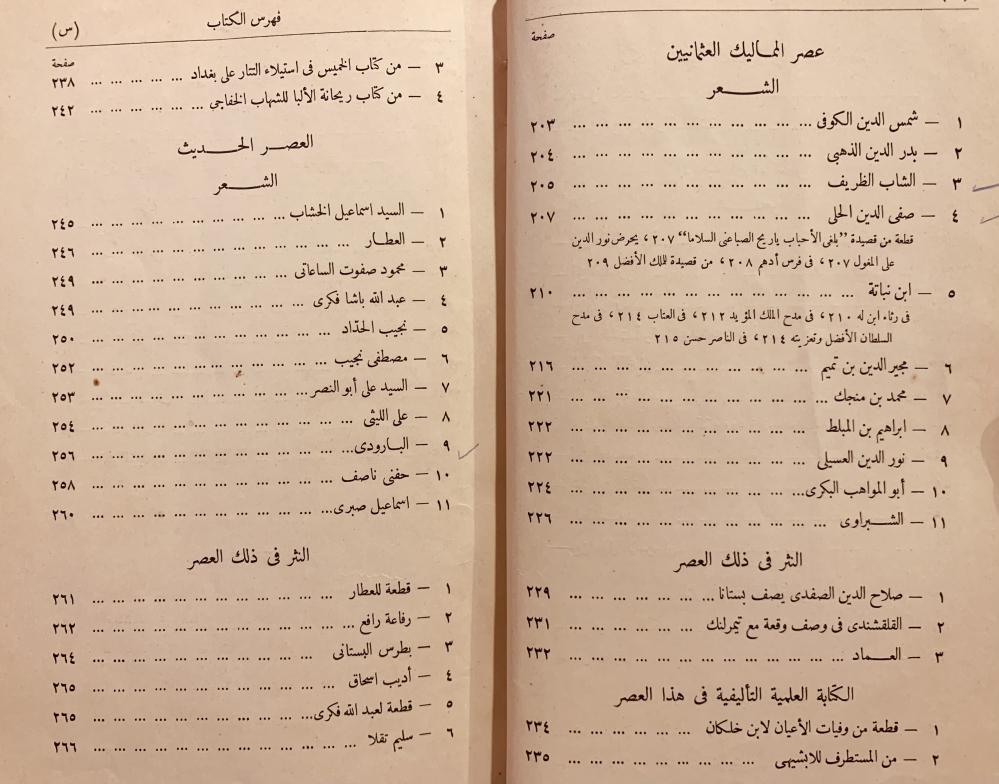 صفحة
عصر المماليك العثمانيين
الشــــعر
١ — شمس الدين الكوفى ... ... ... ... ... ... ... ... ... ٢٠٣
٢ — بدر الدين الذهبى ... ... ... ... ... ... ... ... ... ٢٠٤
٣ — الشاب الظريف ... ... ... ... ... ... ... ... ... ٢٠٥
٤ — صفى الدين الحلى ... ... ... ... ... ... ... ... ... ٢٠٧
قطعة من قصيدة "بلغى الأحباب ياريح الصباعنى السلاما" ٢٠٧، يحرض نور الدين
على المغول ٢٠٧، فى فرس أدهم ٢٠٨، من قصيدة للملك الأفضل ٢٠٩
٥ — ابن نباتة ... ... ... ... ... ... ... ... ... ... ... ٢١٠
فى رثاء ابن له ٢١٠، فى مدح الملك المؤيد ٢١٢، فى العتاب ٢١٤، فى مدح
السلطان الأفضل وتعزيته ٢١٤، فى الناصر حسن ٢١٥
٦ — مجير الدين بن تميم ... ... ... ... ... ... ... ... ... ٢١٦
٧ — محمد بن منجك ... ... ... ... ... ... ... ... ... ... ٢٢١
٨ — ابراهيم بن المبلط ... ... ... ... ... ... ... ... ... ٢٢٢
٩ — نور الدين العسيلى ... ... ... ... ... ... ... ... ... ٢٢٢
١٠ — أبو المواهب البكرى... ... ... ... ... ... ... ... ... ٢٢٤
١١ — الشــبراوى ... ... ... ... ... ... ... ... ... ... ٢٢٦
النثر فى ذلك العصر
١ — صلاح الدين الصفدى يصف بستانا ... ... ... ... ... ... ٢٢٩
٢ — القلقشندى فى وصف وقعة مع تيمرلنك ... ... ... ... ... ٢٣١
٣ — العــماد ... ... ... ... ... ... ... ... ... ... ... ٢٣٢
الكتابة العلمية التأليفية فى هذا العصر
١ — قطعة من وفيات الأعيان لابن خلكان ... ... ... ... ... ... ٢٣٤
٢ — من المستطرف للابشيهى ... ... ... ... ... ... ... ... ٢٣٥
فهرس الكتاب (س)
صفحة
٣ — من كتاب الخميس فى استيلاء التتار على بغداد ... ... ... ... ٢٣٨
٤ — من كتاب ريحانة الألبا للشهاب الخفاجى ... ... ... ... ... ٢٤٢
العصــر الحــديث
الشــــعر
١ — السيد اسماعيل الخشاب ... ... ... ... ... ... ... ... ٢٤٥
٢ — العطار ... ... ... ... ... ... ... ... ... ... ... ٢٤٦
٣ — محمود صفوت الساعاتى ... ... ... ... ... ... ... ... ٢٤٩
٤ — عبد الله باشا فكرى ... ... ... ... ... ... ... ... ٢٤٩
٥ — نجيب الحدّاد ... ... ... ... ... ... ... ... ... ٢٥٠
٦ — مصطفى نجيب ... ... ... ... ... ... ... ... ... ٢٥٢
٧ — السيد على أبو النصر ... ... ... ... ... ... ... ... ٢٥٣
٨ — على الليثى ... ... ... ... ... ... ... ... ... ... ٢٥٤
٩ — البــارودى... ... ... ... ... ... ... ... ... ... ٢٥٦
١٠ — حفنى ناصف ... ... ... ... ... ... ... ... ... ٢٥٨
١١ — اسماعيل صبرى... ... ... ... ... ... ... ... ... ٢٦٠
النثر فى ذلك العصر
١ — قطعة للعطار ... ... ... ... ... ... ... ... ... ٢٦١
٢ — رفاعة رافع ... ... ... ... ... ... ... ... ... ... ٢٦٢
٣ — بطرس البستانى ... ... ... ... ... ... ... ... ... ٢٦٤
٤ — أديب اسحاق ... ... ... ... ... ... ... ... ... ٢٦٥
٥ — قطعة لعبد الله فكرى... ... ... ... ... ... ... ... ٢٦٥
٦ — سليم تقلا ... ... ... ... ... ... ... ... ... ... ٢٦٦